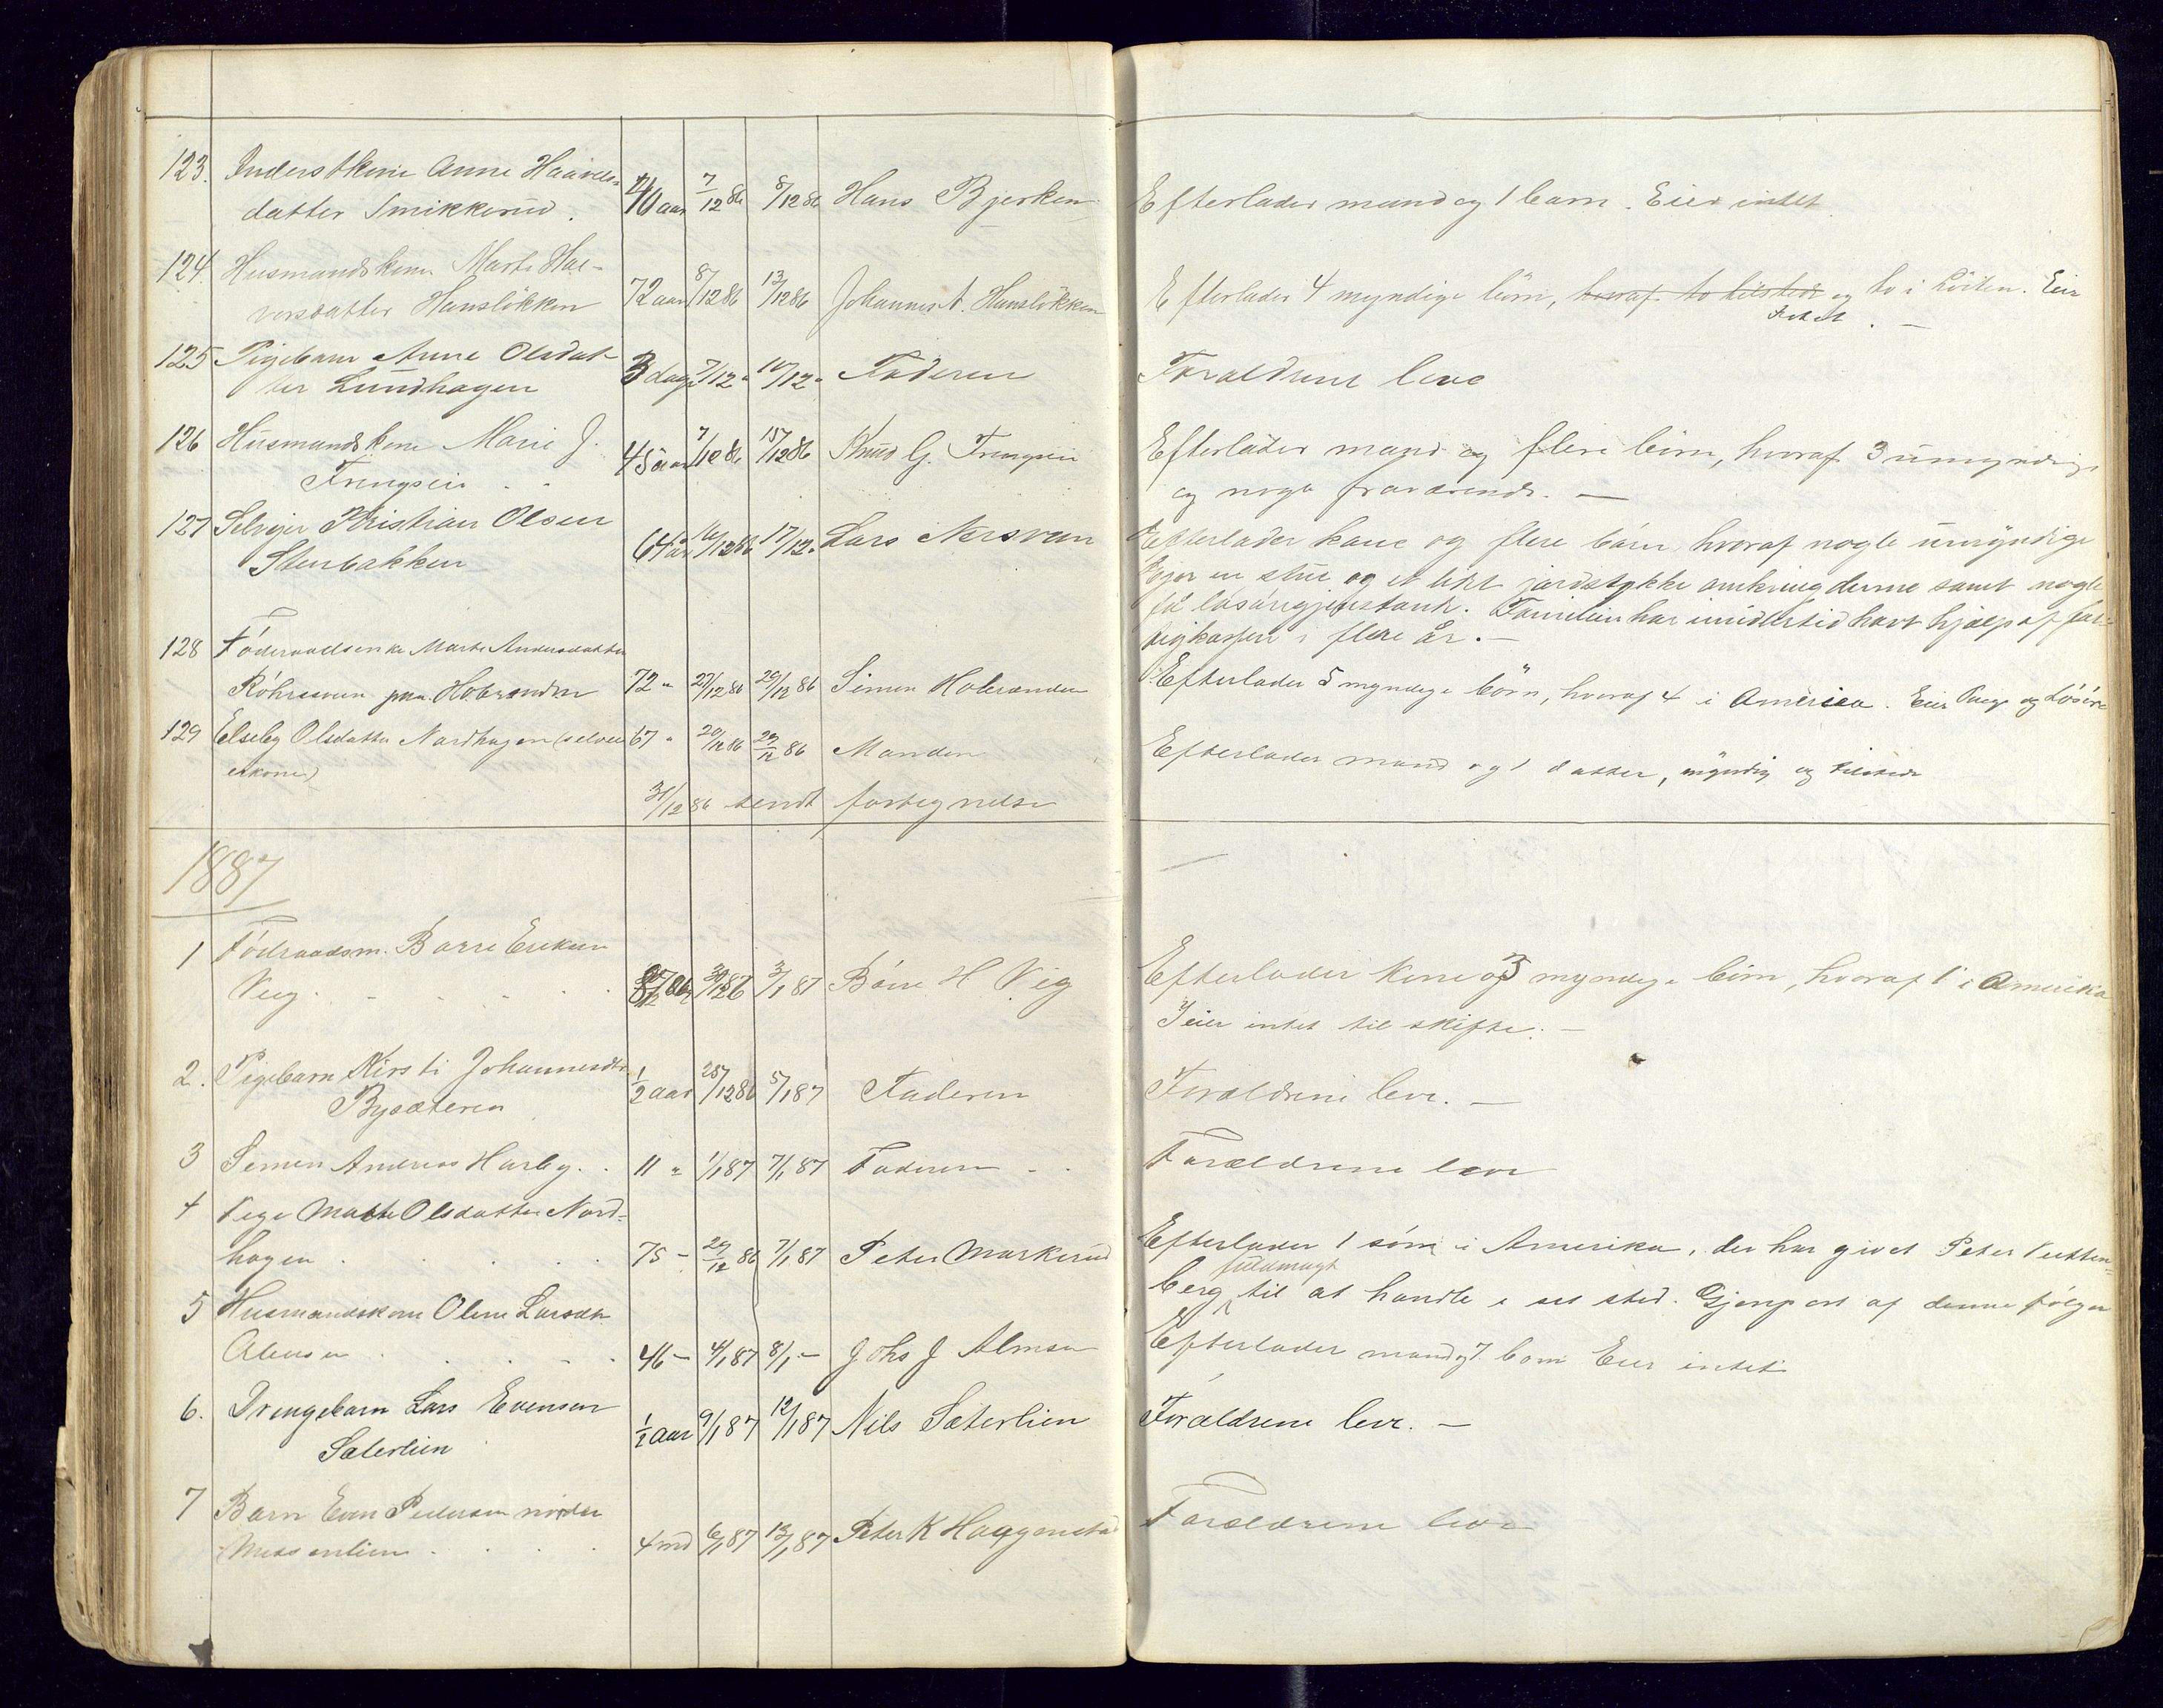 123. Inderstkone Anne Haavels-
datter Smikkerud. 40 aar 7/12 86 8/12 86 Hans Bjerken Efterlader mand og 1 barn. Eier intet
124. Husmandskone Marte Hal-
vorsdatter Hansløkken 72 aar 8/12 86 13/12 86 Johannes A. Hansløkken Efterlader 4 myndige børn, hvoraf to tilstede og to i Eier
intet. —
125 Pigebarn Anne Olsdat-
ter Lundhagen 3 dage 7/12 " 10/12 " Faderen Forældrene leve
126 Husmandskone Marie J.
Frengsei 45 aar 7/12 86 15/12 86 Knud G. Frengsei Efterlader mand og flere børn, hvoraf 3 umyndige
og nogle fraværende. —
127 Selveier Kristian Olsen
Stenbakken 64 aar 10/12 86 17/12 " Lars Nersveen Efterlader kone og flere børn hvoraf nogle umyndige
Ejer en stue og et lidet jordstykke omkring denne samt nogle
få løsøregjenstande. Familien har imidlertid havt hjælp af fat-
tigkassen i flere år. —
128 Føderaadsenke Marte Andersdatter
Røhrsveen paa Holerønden 72 " 27/12 86 29/12 86 Simen Holerønden Efterlader 5 myndige børn, hvoraf 4 i America. Eier Penge og Løsøre
129 Elseby Olsdatter Nordhagen (selvei-
erkone) 67 " 20/12 86 29/12 86 Manden Efterlader mand og 1 datter, myndig og tilstede
31/12 86 sendt fortegnelse
1887
1 Fødraadsm. Børre Eriksen
Vig 87 aar 30/12 86 3/1 87 Børre H Vig Efterlader kone og 3 myndige børn, hvoraf 1 i Amerika
Eier intet til skifte. —
2. Pigebarn Kirsti Johannesdtr
Bysæteren 1/2 aar 28/12 86 5/1 87 Faderen Forældrene leve. —
3 Simen Andreas Harby. 11 " 1/1 87 7/1 87 Faderen Forældrene leve
4 Pige Mathe Olsdatter Nord-
hagen 75 – 29/12 86 7/1 87 Peter Markerud Efterlader 1 søn i Amerika, der har givet Peter
berg fuldmagt til at handle i sit sted. Gjenpart af denne følger
5 Husmandskone Oline Larsdtr
Almsen 46 – 4/1 87 8/1 – Johs J Almsen Efterlader mand og 7 børn Eier intet
6. Drengebarn Lars Evensen
Sæterlien 1/2 aar 9/1 87 12/1 87 Nils Sæterlien Forældrene leve. —
7 Barn Even Pedersen nordre
Messenlien 4 md 6/1 87 13/1 87 Peter K Haugenstad Forældrene leve